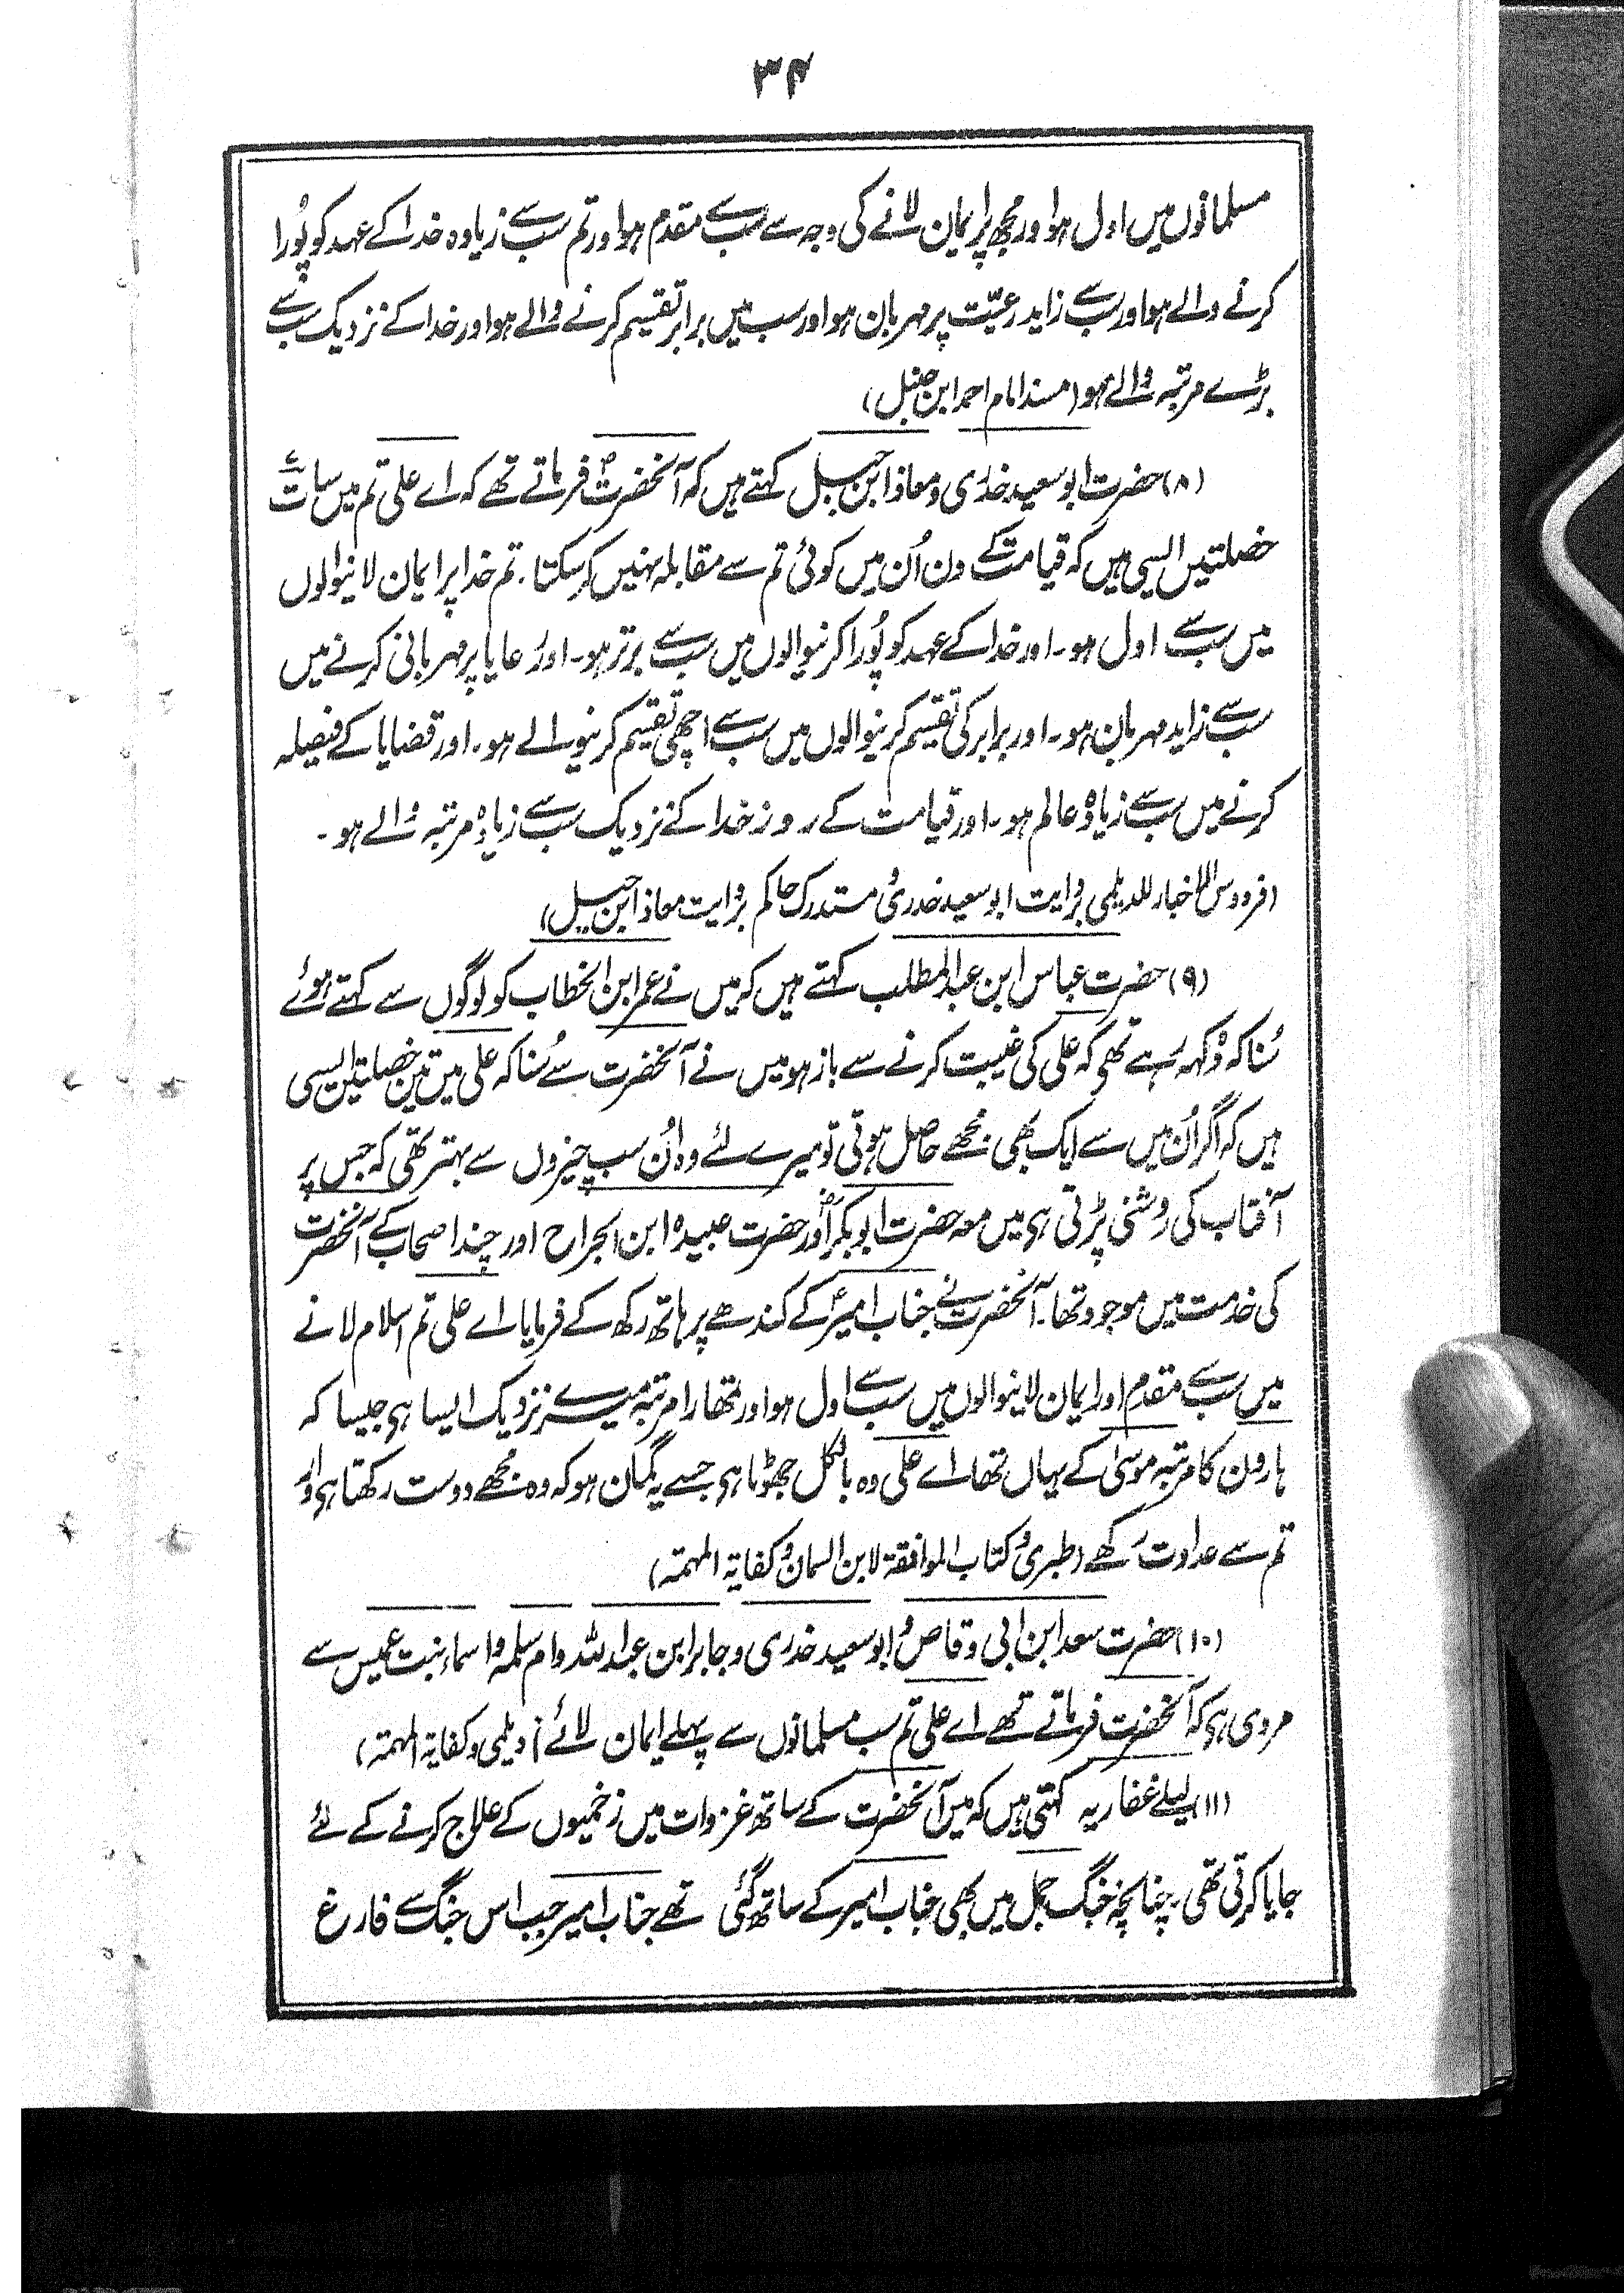 ۳۴
مسلمانوں میں اول ہو اور مجھ پر ایمان لانے کی وجہ سے سب سے مقدم ہو اور تم سب سے زیادہ خدا کے عہد کو پُورا
کرنے والے ہو اور سب سے زاید رعیّت پر مہربان ہو اور سب میں برابر تقسیم کرنے والے ہو اور خدا کے نزدیک سب سے
بڑے مرتبہ والے ہو (مسند امام احمد ابن حنبل)
(۸) حضرت ابو سعید خدری و معاذ ابن جبل کہتے ہیں کہ آنحضرتؐ فرماتے تھے کہ اے علی تم میں سات
خصلتیں ایسی ہیں کہ قیامت کے دن اُن میں کوئی تم سے مقابلہ نہیں کر سکتا۔ تم خدا پر ایمان لانیوالوں
میں سب سے اول ہو۔ اور خدا کے عہد کو پُورا کرنیوالوں میں سب سے برتر ہو۔ اور رعایا پر مہربانی کرنے میں
سب سے زاید مہربان ہو۔ اور برابر کی تقسیم کرنیوالوں میں سب سے اچھی تقسیم کرنیوالے ہو۔ اور قضایا کے فیصلہ
کرنے میں سب سے زیادہ عالم ہو۔ اور قیامت کے روز خدا کے نزدیک سب سے زیادہ مرتبہ والے ہو۔
(فردوس الاخبار للدیلمی بروایت ابو سعید خدری و مستدرک حاکم بروایت معاذ ابن جبل)
(۹) حضرت عباس ابن عبد المطلب کہتے ہیں کہ میں نے عمر ابن الخطاب کو لوگوں سے کہتے ہوئے
سُنا کہ وہ کہہ رہے تھے کہ علی کی غیبت کرنے سے باز ہو میں نے آنحضرت سے سُنا کہ علی میں تین خصلتیں ایسی
ہیں کہ اگر اُن میں سے ایک بھی مجھے حاصل ہوتی تو میرے لئے وہ اُن سب چیزوں سے بہتر تھی کہ جس پر
آفتاب کی روشنی پڑتی ہی میں معہ حضرت ابو بکرؓ اور حضرت عبیدہ ابن الجراح اور چند اصحاب کے آنحضرت
کی خدمت میں موجود تھا۔ آنحضرت نے جناب امیرؑ کے کندھے پر ہاتھ رکھ کے فرمایا اے علی تم اسلام لانے
میں سب سے مقدم اور ایمان لانیوالوں میں سب سے اول ہو اور تمھارا مرتبہ میرے نزدیک ایسا ہی جیسا کہ
ہارون کا مرتبہ موسیٰ کے یہاں تھا اے علی وہ بالکل جھوٹا ہی جسے یہ گمان ہو کہ وہ مجھے دوست رکھتا ہی اور
تم سے عداوت رکھے (طبری و کتاب الموافقۃ لابن السمان و کفایۃ المہمتہ)
(۱۰) حضرت سعد ابن ابی وقاص و ابو سعید خدری و جابر ابن عبد اللہ و ام سلمہ و اسماء بنت عمیس سے
مروی ہی کہ آنحضرت فرماتے تھے اے علی تم سب مسلمانوں سے پہلے ایمان لائے (دیلمی و کفایۃ المہمتہ)
(۱۱) لیلےٰ غفاریہ کہتی ہیں کہ میں آنحضرت کے ساتھ غزوات میں زخمیوں کے علاج کرنے کے لئے
جایا کرتی تھی۔ چنانچہ جنگ جمل میں بھی جناب امیر کے ساتھ گئی تھے جناب امیر جب اس جنگ سے فارغ